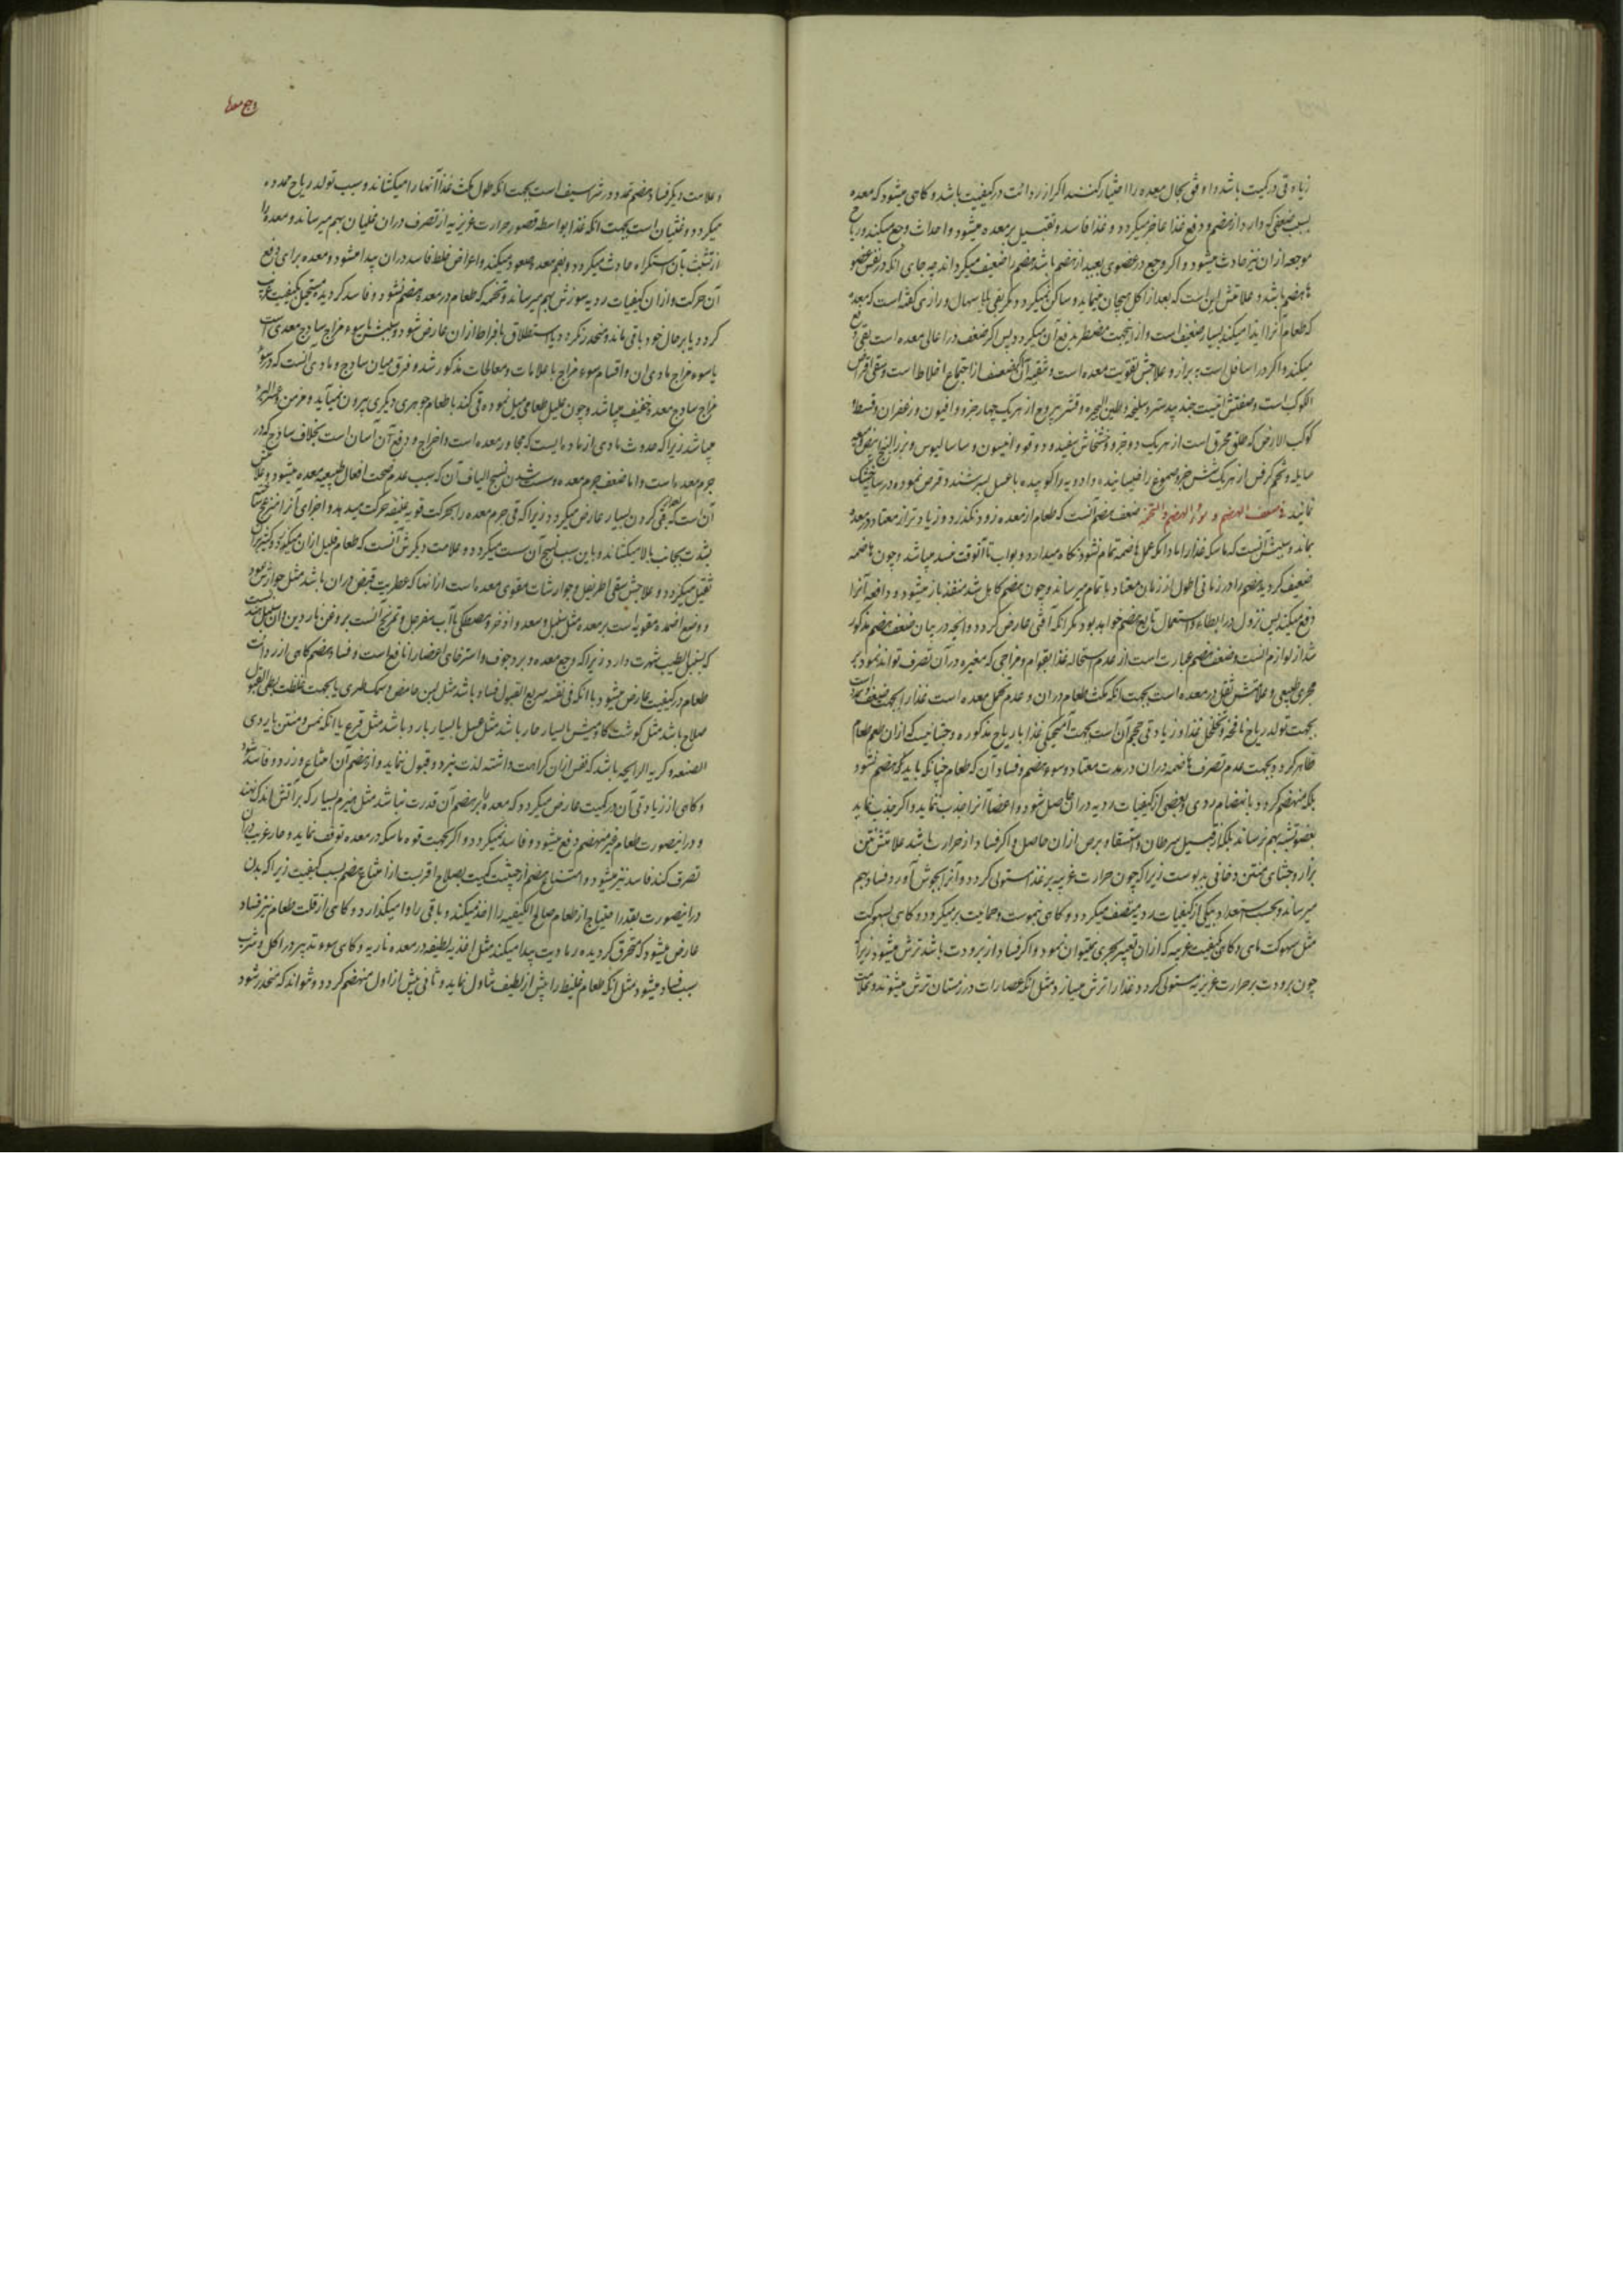 زیادتی در کمیت باشد و اوفق بحال معده را اختیار کنند اگر از رداءت در کیفیت باشد و کاهی میشود که معده
بسبب ضعفی که دارد از هضم و دفع غذا عاجز میکردد و غذا فاسد و ثقیل بر معده میشود و احداث وجع میکند و ریاح
موجعه ازان نیز حادث میشود و اکر وجع در عضوی بعید از هضم باشد هضم را ضعیف میکرداند چه جای انکه در نفس عضو
هاضم باشد و علامتش این است که بعد از اکل هیجان مینماید و ساکن نمیکردد مکر بقی یا باسهال و رازی کفته است که معده
که طعام آنرا ایذا میکند بسیار ضعیف است و از اینجهت مضطر بدفع آن میکردد پس اکر ضعف در اعالی معده است بقی دفع
میکند و اکر در اسافل است ببراز و علاجش تقویت معده است و تنقیه آن اکر ضعف از اجتماع اخلاط است و سقی اقراص
الکوکب است و صفتش اینست جندبیدستر و سلیخه و طین البحیره و قشر یبروح از هر یک چهار جزو و افیون و زعفران و قسط و
کوکب الارض که طلق محرق است از هر یک دو جزو و خشخاش سفید و دوقو و انیسون و ساسالیوس و بزرالبنج ابیض و میعه
سایله و تخم کرفس از هر یک شش جزو صموغ را خیسانیده و ادویه را کوبیده با عسل بسرشند و قرص نموده در سایه خشک
نمایند فی ضعف الهضم و سوء الهضم و التخمه ضعف هضم آنست که طعام از معده زود نکذرد و زیادتر از معتاد در معده
بماند و سببش آنست که ماسکه غذا را مادامکه عمل هاضمه تمام نشود نکاه میدارد و بواب تا آنوقت منسد میباشد و چون هاضمه
ضعیف کردید هضم را در زمانی اطول از زمان معتاد باتمام میرساند و چون هضم کامل شد منفذ باز میشود و دافعه آنرا
دفع میکند پس نزول در ابطاء و استعجال تابع هضم خواهد بود مکر انکه آفتی عارض کردد و انچه در بیان ضعف هضم مذکور
شد از لوازم آنست و ضعف هضم عبارت است از عدم استحاله غذا بقوام و مزاجی که مغیره در آن تصرف تواند نمود بر
مجری طبیعی و علامتش ثقل در معده است بجهت انکه مکث طعام دران و عدم تحمل معده است غذا را بجهت ضعف و تمدد است
بجهت تولد ریاح نافخه و تخلخل غذا و زیادتی حجم آن است بجهت آمیختکی غذا با ریاح مذکوره و جشائیست که ازان طعم طعام
ظاهر کردد بجهت عدم تصرف هاضمه دران در مدت معتاد و سوء هضم و فساد آن که طعام چنانکه باید هضم نشود
بلکه منهضم کردد بانهضام ردی و بعضی از کیفیات ردیه دران حاصل شود و اعضا آنرا جذب ننماید و اکر جذب نماید
بعضو تشبه بهم نرساند بلکه از قبیل سرطان و استسقا و برص ازان حاصل و اکر فساد از حرارت باشد علامتش نتن
براز و جشای منتن دخانی بدبوست زیراکه چون حرارت غریبه بر غذا مستولی کردد و آنرا بجوش آورد فساد بهم
میرساند و بحسب استعداد بیکی از کیفیات ردیه متصف میکردد و کاهی بحموضت و حماییت برمیکردد و کاهی بسهوکت
مثل سهوکت ماهی و کاهی بکیفیت غریبه که ازان تعبیر بچیزی نمیتوان نمود و اکر فساد از برودت باشد ترش میشود زیراکه
چون برودت بر حرارت غریزیه مستولی کردد غذا را ترش میسازد مثل انکه عصارات در زمستان ترش میشوند و علامت
وجع معده
و علامت دیکر فساد هضم تمدد در شراسیف است بجهت انکه طول مکث غذا آنها را میکشاند و سبب تولد ریاح ممدده
میکردد و غثیان است بجهت انکه غذا بواسطه قصور حرارت غریزیه از تصرف دران غلیان بهم میرساند و معده را
از تشبث بآن استکراه حادث میکردد و بفم معده صعود میکند و اعراض خلط فاسد دران پیدا میشود و معده برای دفع
آن حرکت و ازان کیفیات ردیه سوزش بهم میرساند و تخمه که طعام در معده هضم نشود و فاسد کردیده مستحیل بکیفیت غریبه
کردد یا بر حال خود باقی ماند و منحدر نکردد یا استطلاق بافراط ازان عارض شود و سببش یا سوء مزاج ساذج معدی است
یا سوء مزاج مادی ان و اقسام سوء مزاج با علامات و معالجات مذکور شد و فرق میان ساذج و مادی آنست که در سوء
مزاج ساذج معده خفیف میباشد و چون علیل طعامی میل نموده قی کند با طعام جوهری دیکری بیرون نمیآید و مزمن و عسر البرء
میباشد زیراکه حدوث مادی از ماده ایست که مجاور معده است و اخراج و دفع آن آسان است بخلاف ساذج که در
جرم معده است و اما ضعف جرم معده و سست شدن نسیج الیاف آن که سبب عدم صحت افعال طبیعیه معده میشود و علامتش
آن است که بعد از قی کردن بسیار عارض میکردد زیراکه قی جرم معده را بحرکت قویه عنیفه حرکت میدهد و اجزای آنرا
بشدت بجانب بالا میکشاند و باین سبب نسیج آن سست میکردد و علامت دیکرش آنست که طعام قلیل ازان میکوارد و کثیر ازان
ثقیل میکردد و علاجش سقی اطریفل و جوارشات مقوی معده است از انها که عطریت قبض دران باشد مثل جوارش عود
و وضع اضمده مقویه است بر معده مثل سنبل و سعد و اذخر و مصطکی با آب سفرجل و تمریخ آنست بروغن ناردین و آن سنبلی است
که بسنبل الطیب شهرت دارد زیراکه وجع معده و برد جوف و استرخای اعضا را نافع است و فساد هضم کاهی از رداءت
طعام در کیفیت عارض میشود یا انکه فی نفسه سریع القبول فساد باشد مثل لبن حامض و سمک طری یا بجهت غلظت بطی القبول
صلاح باشد مثل کوشت کاومیش یا بسیار حار باشد مثل عسل یا بسیار بارد باشد مثل قرع یا انکه نمس و منتن یا ردی
الصنعه و کریه الرایحه باشد که نفس ازان کراهت داشته لذت نبرد و قبول ننماید و از هضم آن امتناع ورزد و فاسد شود
و کاهی از زیادتی آن در کمیت عارض میکردد که معده را بر هضم آن قدرت نباشد مثل هیزم بسیار که بر آتش اندک کنند
و درینصورت طعام غیر منهضم دفع میشود و فاسد نمیکردد و اکر بجهت قوه ماسکه در معده توقف نماید و حار غریب دران
تصرف کند فاسد نیز میشود و امتناع هضم از حیثیت کمیت بصلاح اقربست از امتناع هضم بسبب کیفیت زیراکه بدن
درینصورت بقدر احتیاج از طعام صالح الکیفیه را اخذ میکند و باقی را وا میکذارد و کاهی از قلت طعام نیز فساد
عارض میشود که محترق کردیده رمادیت پیدا میکند مثل اغذیه لطیفه در معده ناریه و کاهی سوء تدبیر در اکل و شرب
سبب فساد میشود مثل انکه طعام غلیظ را پیش از لطیف تناول نماید و ثانی پیش از اول منهضم کردد و نتواند که منحدر شود